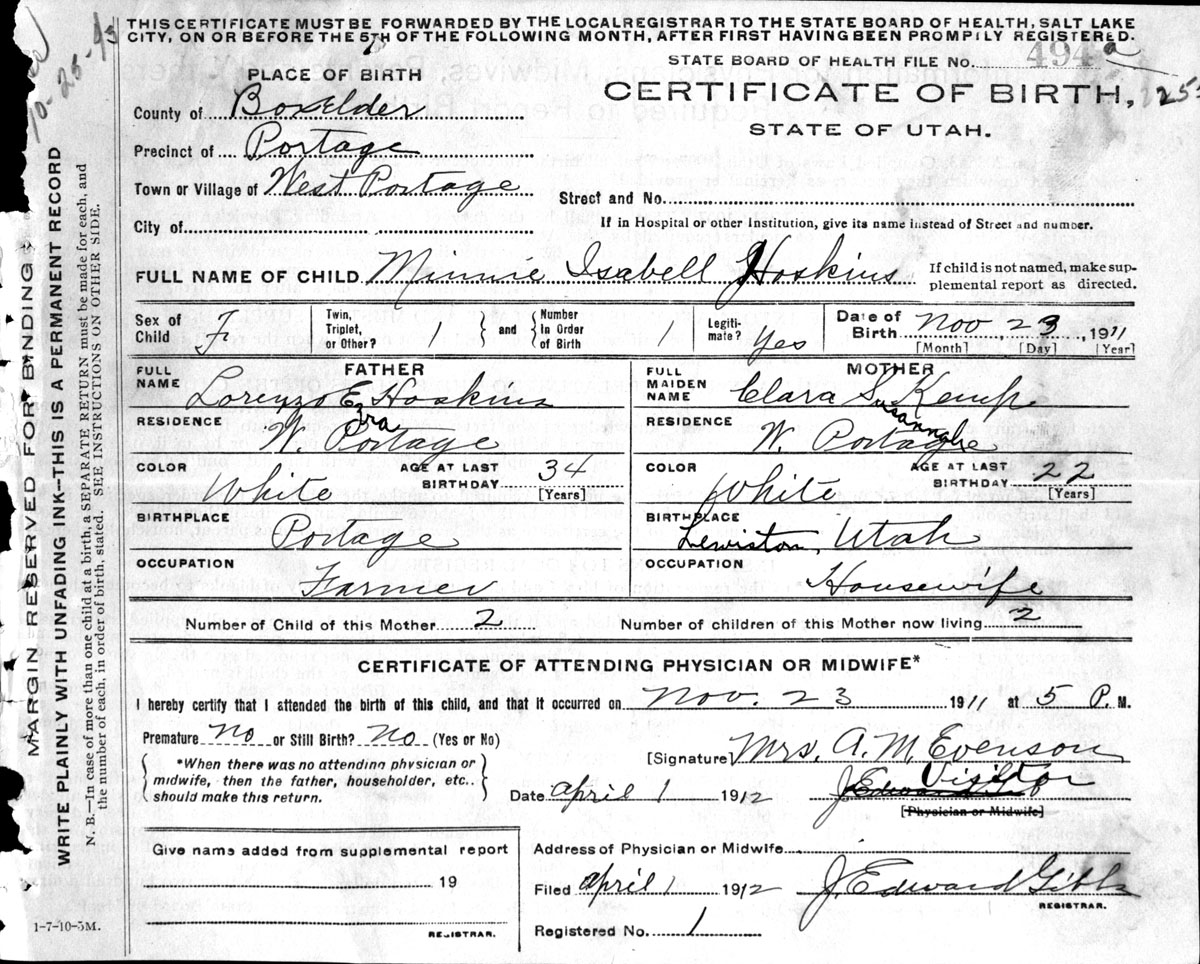 THIS CERTIFICATE MUST BE FORWARDED BY THE LOCAL REGISTRAR TO THE STATE BOARD OF HEALTH, SALT LAKE
CITY, ON OR BEFORE THE 5TH OF THE FOLLOWING MONTH, AFTER FIRST HAVING BEEN PROMPILY REGISTERED.
STATE BOARD OF HEALTH FILE No. 494 a
PLACE OF BIRTH
CERTIFICATE OF BIRTH,
STATE OF UTAH.
County of Boxelder
Precinct of Portage
Town or Village of West Portage
Street and No.
City of
If in Hospital or other Institution, give its name instead of Street and number.
FULL NAME OF CHILD Minnie Isabell Hoskins
If child is not named, make sup-
plemental report as directed.
Sex of Child F
Twin, Triplet, or Other? 1
and
Number In Order of Birth 1
Legiti-mate? Yes
Date of Birth Nov 23, 1911
[Month] [Day] [Year]
FATHER
FULL NAME Lorenzo Ezra Hoskins
RESIDENCE W. Portage
COLOR White
AGE AT LAST BIRTHDAY 34
[Years]
BIRTHPLACE Portage
OCCUPATION Farmer
MOTHER
FULL MAIDEN NAME Clara Susannah Kemp
RESIDENCE W. Portage
COLOR White
AGE AT LAST BIRTHDAY 22
[Years]
BIRTHPLACE Lewiston, Utah
OCCUPATION Housewife
Number of Child of this Mother 2
Number of children of this Mother now living 2
CERTIFICATE OF ATTENDING PHYSICIAN OR MIDWIFE*
I hereby certify that I attended the birth of this child, and that it occurred on Nov. 23 1911 at 5 P. M.
Premature no or Still Birth? no (Yes or No)
*When there was no attending physician or
midwife, then the father, householder, etc.,
should make this return.
[Signature] Mrs. A. M. Evenson
Visitor
Date april 1 1912
[Physician or Midwife]
Give name added from supplemental report
19
REGISTRAR.
Address of Physician or Midwife
Filed april 1 1912 J. Edward Gibbs
REGISTRAR.
Registered No. 1
1-7-10-5M.
MARGIN RESERVED FOR BINDING
WRITE PLAINLY WITH UNFADING INK—THIS IS A PERMANENT RECORD
N. B.—In case of more than one child at a birth, a SEPARATE RETURN must be made for each, and
the number of each, in order of birth, stated. SEE INSTRUCTIONS ON OTHER SIDE.